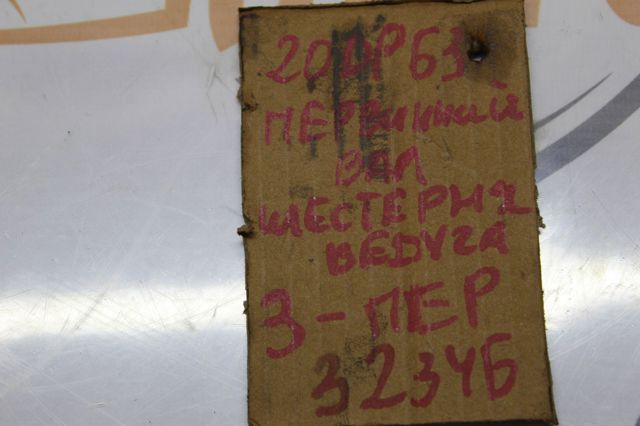 20DP63
ПЕРВИННИЙ
ВАЛ
ШЕСТЕРНЯ
ВЕДУГА
3-ПЕР
3234Б